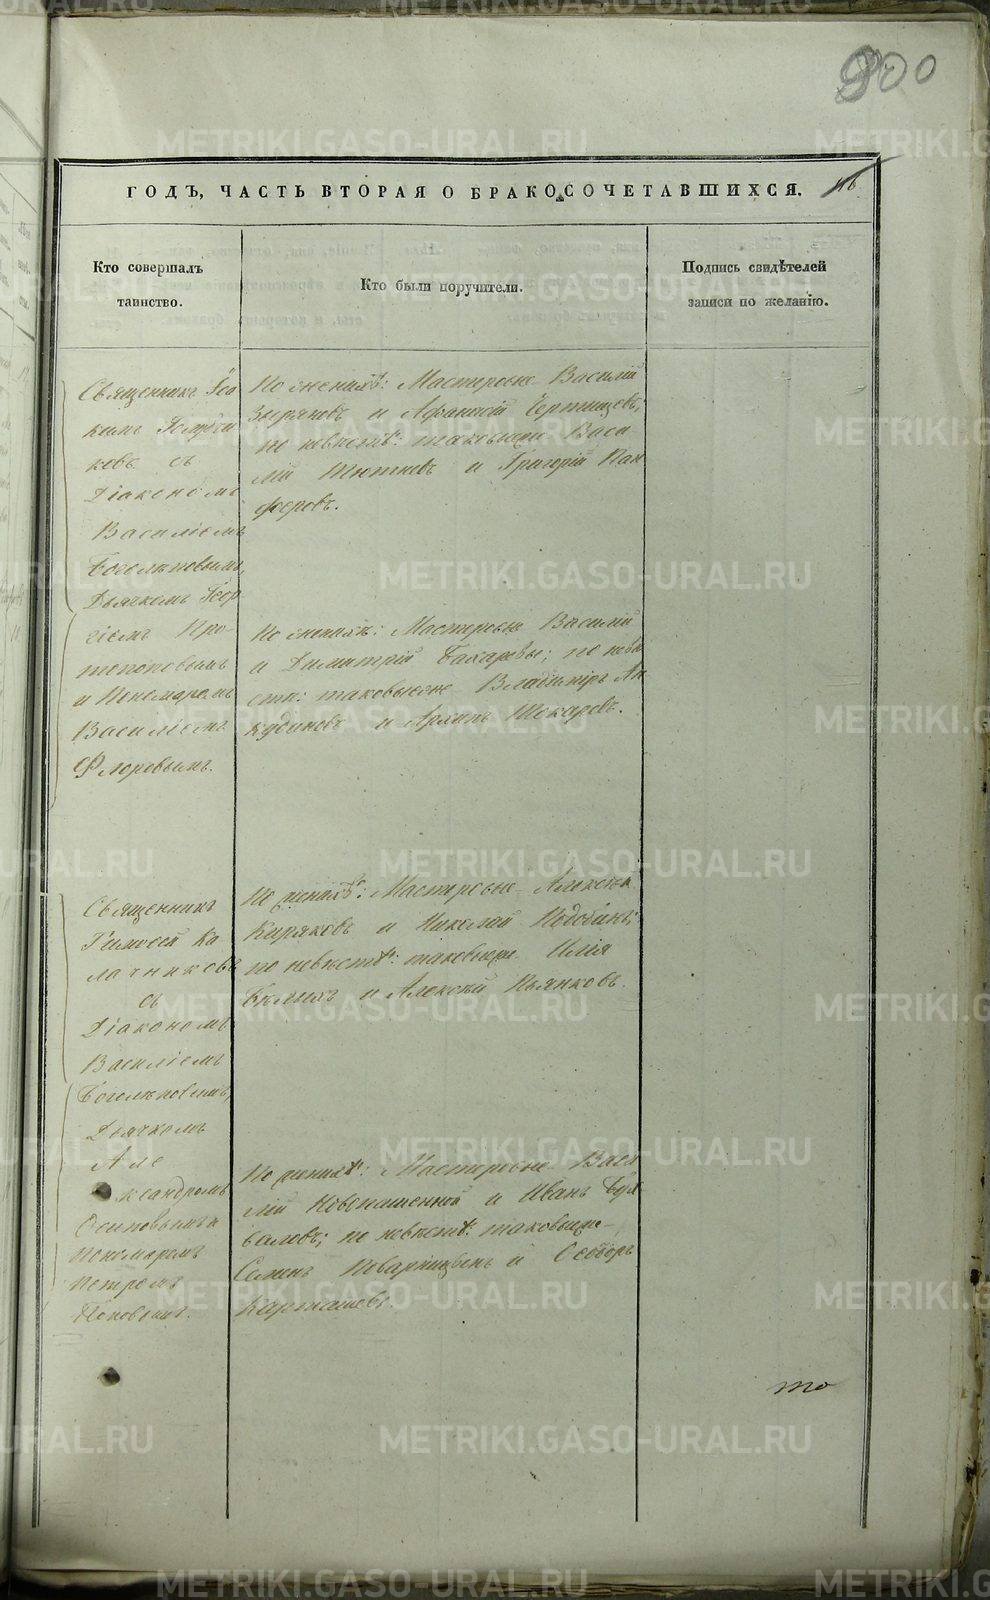 900
ГОДЪ, ЧАСТЬ ВТОРАЯ О БРАКОСОЧЕТАВШИХСЯ.
116
Кто совершалъ
таинство.
Кто были поручители.
Подпись свидѣтелей
записи по желанію.
Священникъ Іоа
кимъ
ковъ съ
Діакономъ
Василіемъ
Боголѣповымъ,
Дьячкомъ Геор
гіемъ Про-
топоповымъ
и Пономаремъ
Василіемъ
Флоровымъ.
По женихѣ: Мастеровые Василій
Зыряновъ и Афанасій Чертищевъ;
по невѣстѣ: таковыеже Васи
лій Тютневъ и Григорій Пан
феровъ.
По женихѣ: Мастеровые Василій
и Димитрій Бахаревы; по невѣ
стѣ: таковыеже Владиміръ Ан
кудиновъ и Архипъ Токаревъ.
Священникъ
Тимофей Ка
лачниковъ
съ
Діакономъ
Василіемъ
Боголѣповымъ,
Дьячкомъ
Але
ксандромъ
Осиповымъ и
Пономаремъ
Петромъ
Поповымъ.
По женихѣ: Мастеровые Алексѣй
Киряковъ и Николай
по невѣстѣ: таковыеже Илія
Бѣлыхъ и Алексѣй Пьянковъ.
По женихѣ: Мастеровые Васи
лій Новопашенной и Иванъ
валовъ; по невѣстѣ: таковыеже
Семенъ Поварницынъ и Ѳеодоръ
Карташевъ.
то
METRIKI.GASO-URAL.RU